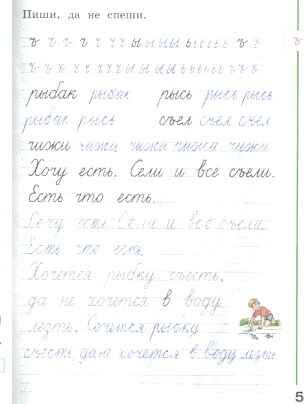 Пиши, да не спеши.
ъ ъ ъ ъ ч ч ч ы ы ы ы ь ь ь ь ь ъ ъ
рыбак рыбак рысь рысь рысь
рыбак рысь съел съел съел
чижи чижи чижи чижи чижи
Хочу есть. Сели и все съели.
Есть что есть.
Хочу есть. Сели и все съели.
Есть что есть.
Хочется рыбку съесть,
да не хочется в воду
лезть. Хочется рыбку
съесть, да не хочется в воду лезть
5